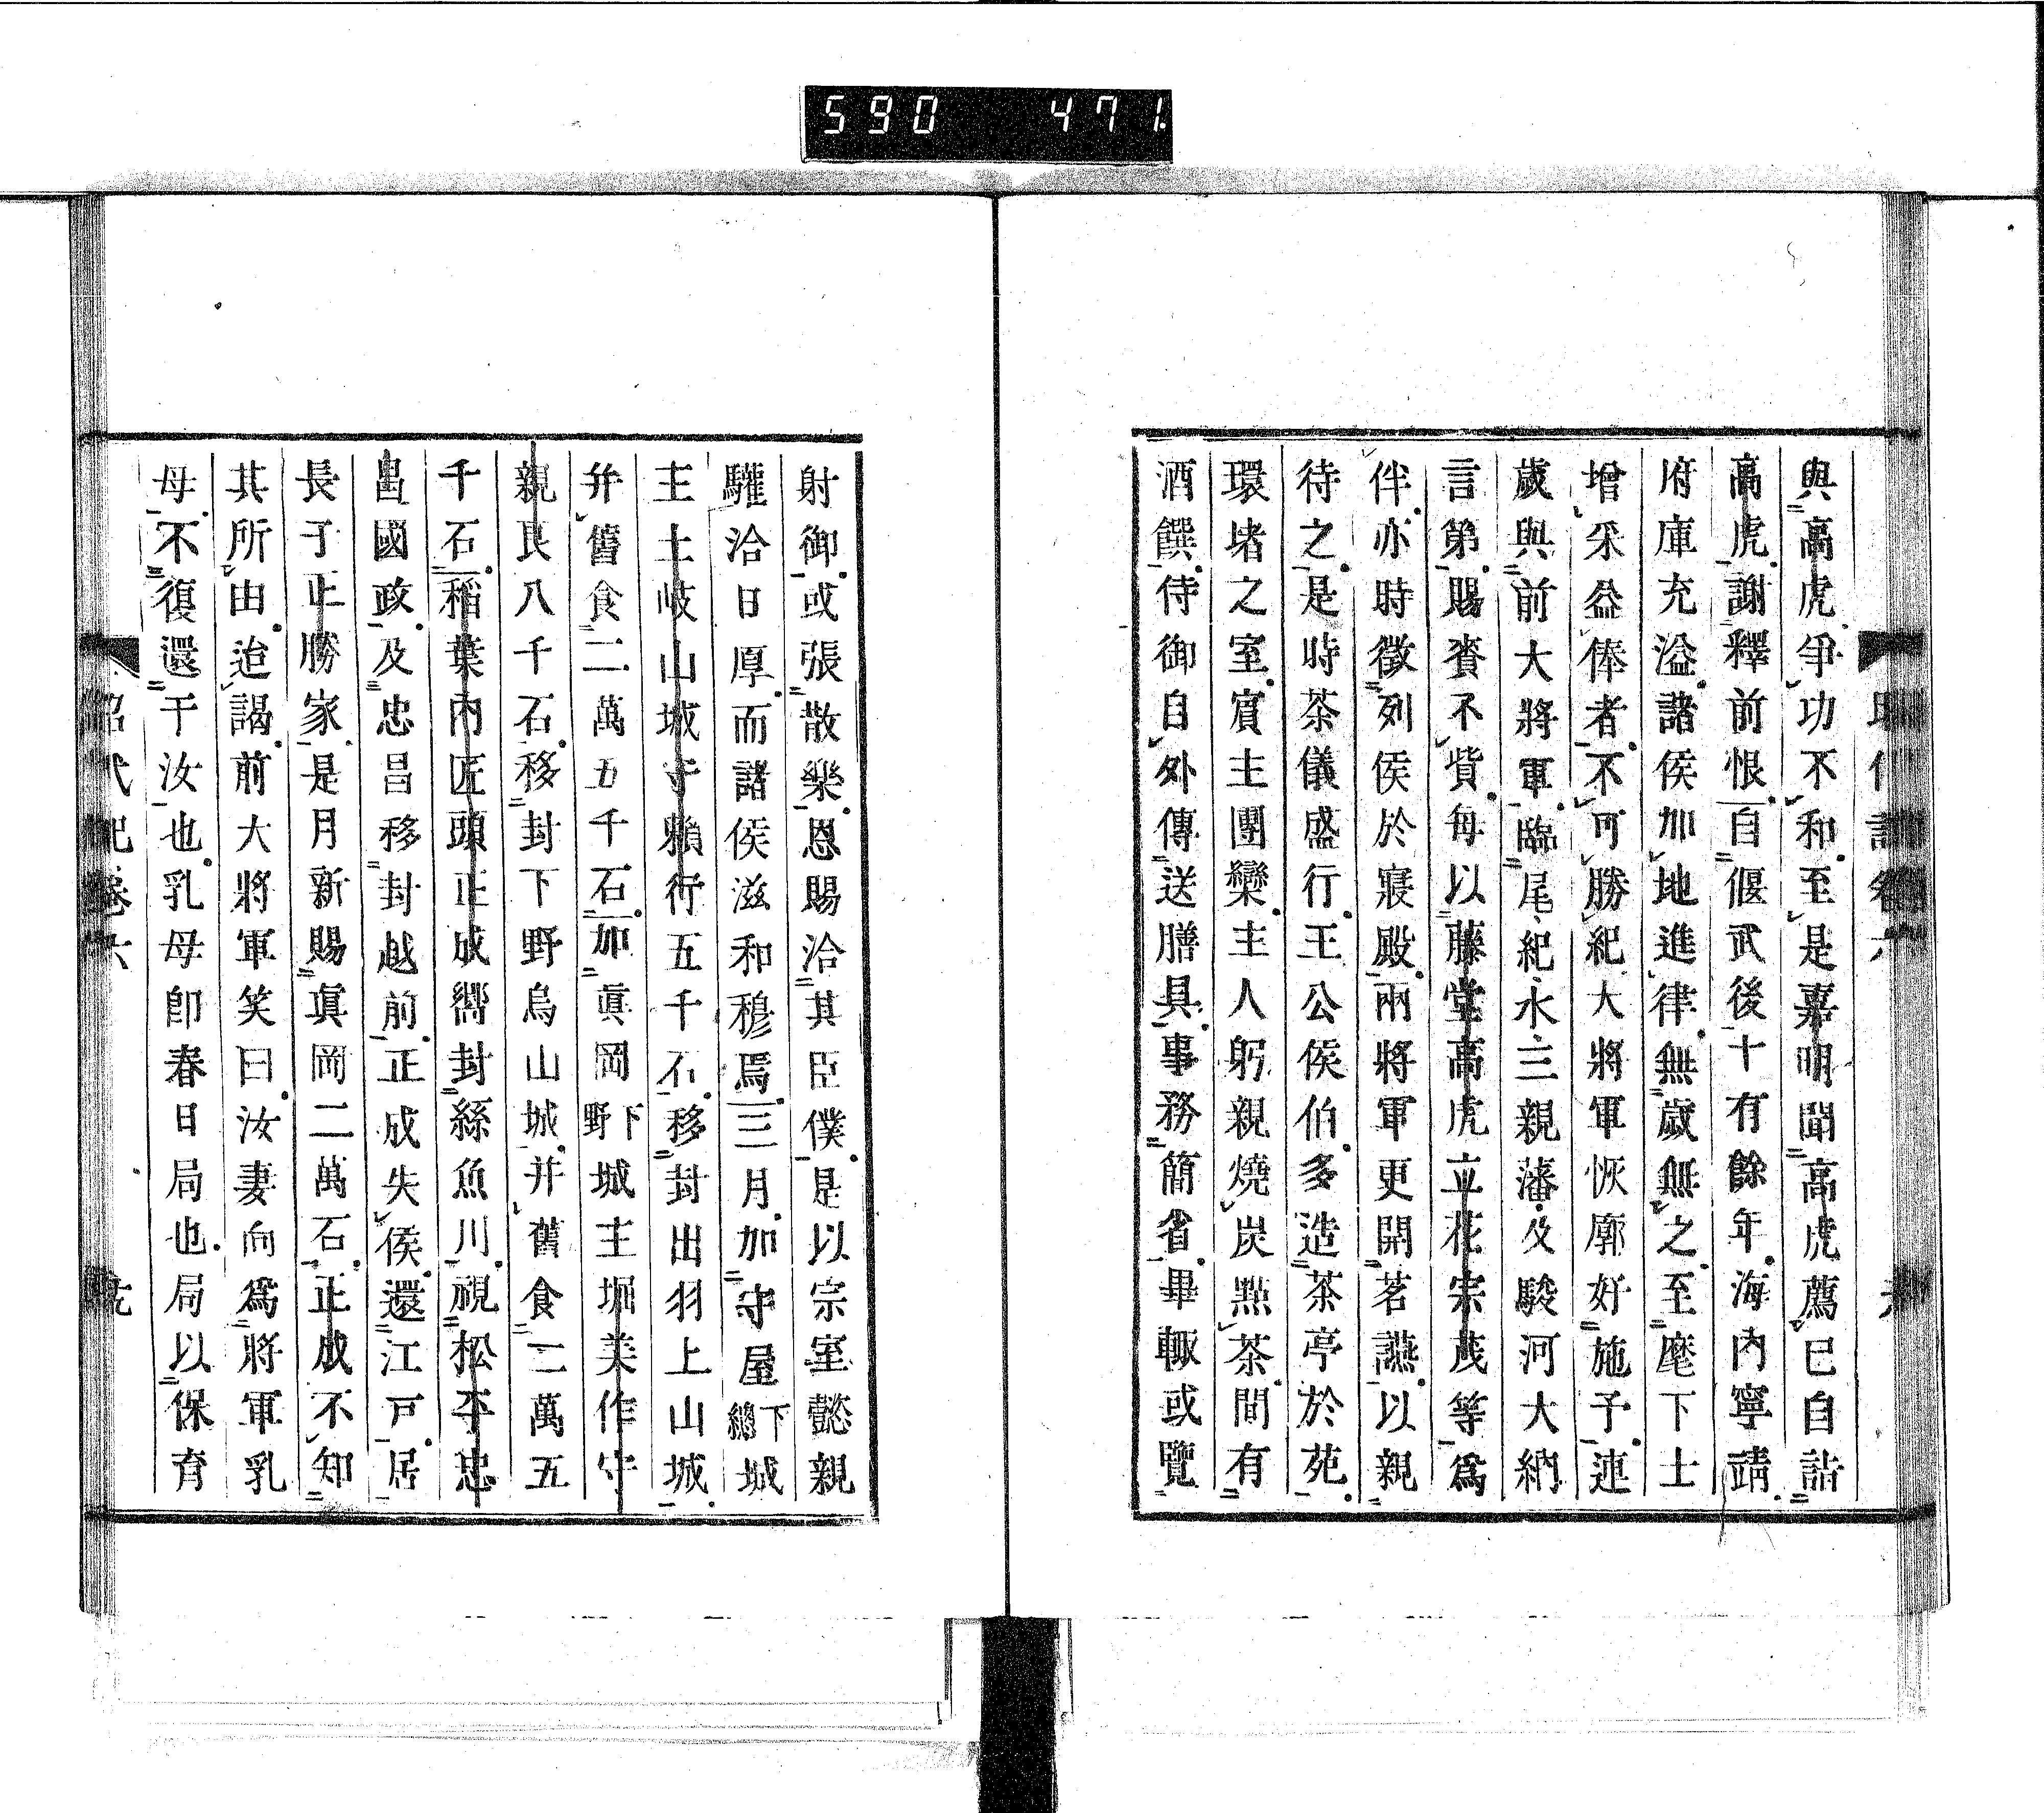 590 471
與高虎爭功不和至是嘉明聞高虎薦已自詣
高虎謝釋前恨自偃武後十有餘年海内寧靖
府庫充溢諸侯加地進律無歲無之至麾下士
增采益俸者不可勝紀大將軍恢廓好施予連
歲與前大將軍臨尾紀水三親藩及駿河大納
言第賜賚不貲毎以藤堂高虎立花宗茂等爲
伴亦時徵列侯於寢殿兩將軍更開茗讌以親
待之是時茶儀盛行王公侯伯多造茶亭於苑
環堵之室賓主團欒主人躬親燒炭點茶間有
酒饌侍御自外傳送膳具事務簡省畢輙或覽
射御或張散樂恩賜洽其臣僕是以宗室懿親
驩洽日厚而諸侯滋和穆焉三月加守屋下總城
主土岐山城守賴行五千石移封出羽上山城
并舊食二萬五千石加眞岡下野城主堀美作守
親良八千石移封下野烏山城并舊食二萬五
千石稻葉内匠頭正成嚮封絲魚川視松平忠
昌國政及忠昌移封越前正成失侯還江戸居
長子正勝家是月新賜眞岡二萬石正成不知
其所由迨謁前大將軍笑曰汝妻向爲將軍乳
母不復還于汝也乳母卽春日局也局以保育
昭代記卷六